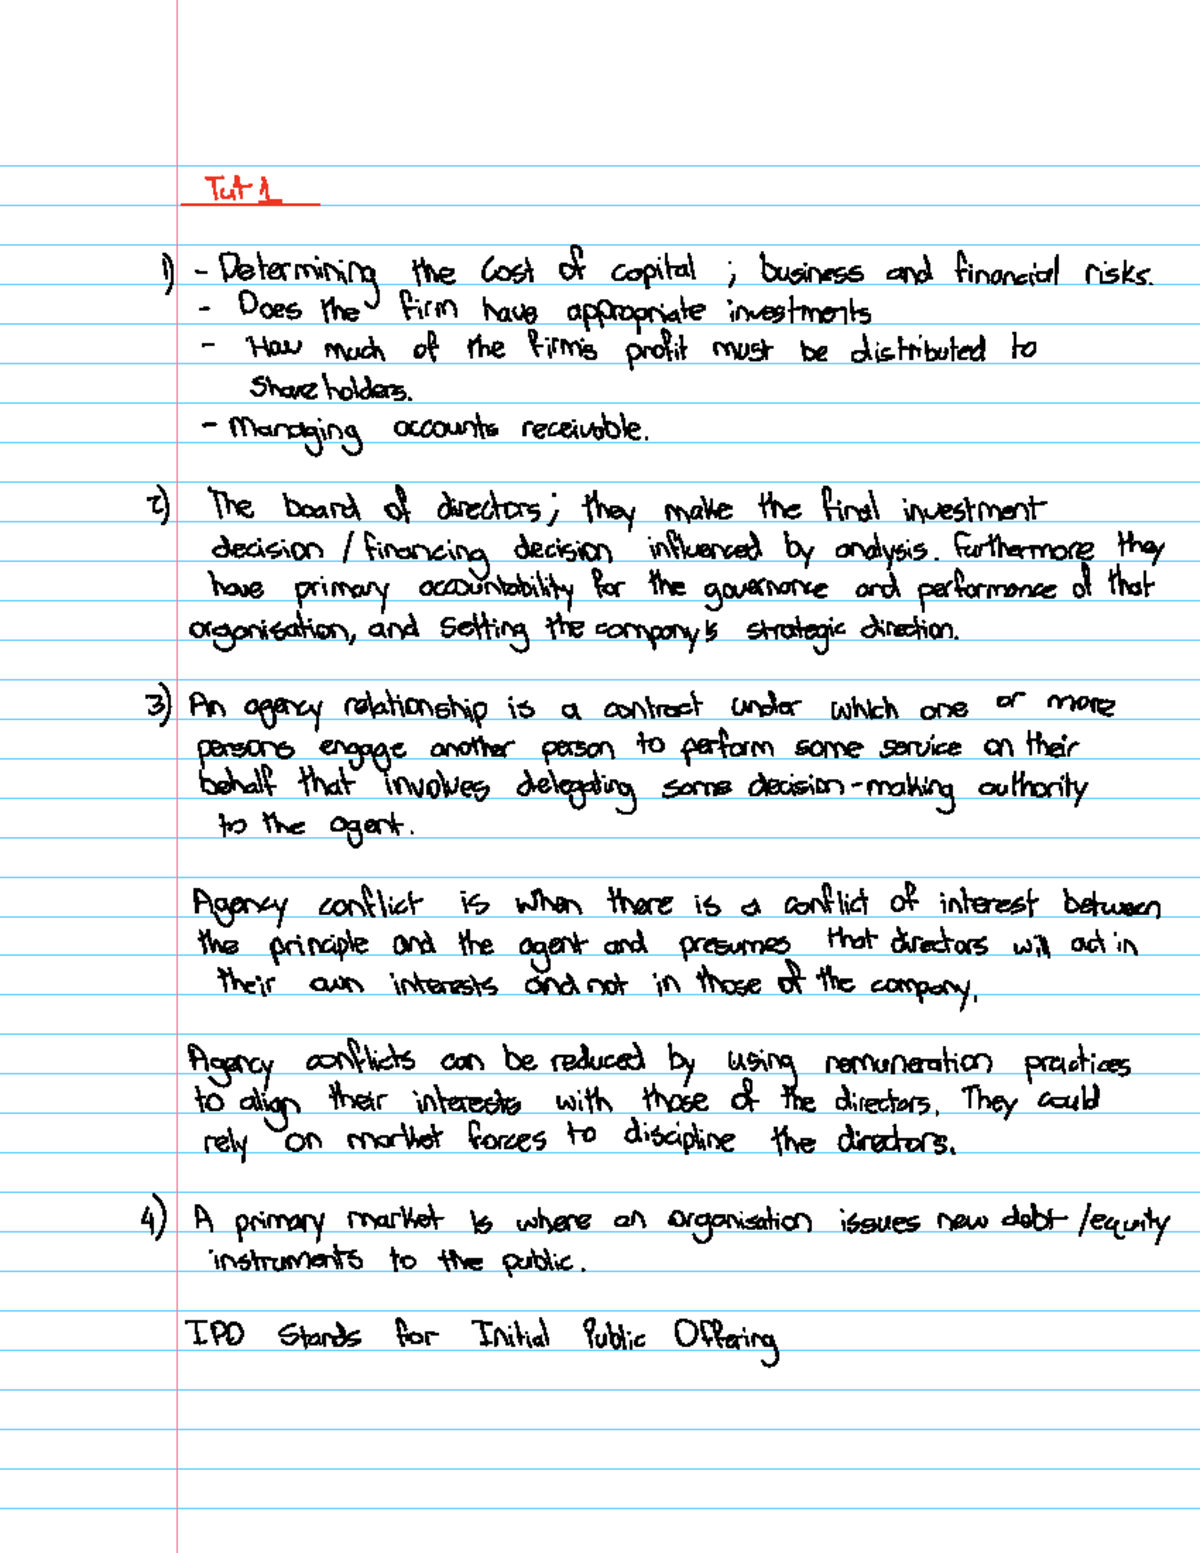 Tut 1
1) - Determining the cost of capital ; business and financial risks.
- Does the firm have appropriate investments
- How much of the firm's profit must be distributed to
Shareholders.
- Managing accounts receivable.
2) The board of directors; they make the final investment
decision / financing decision influenced by analysis. Furthermore they
have primary accountability for the governance and performance of that
organisation, and setting the company's strategic direction.
3) An agency relationship is a contract under which one or more
persons engage another person to perform some service on their
behalf that involves delegating some decision-making authority
to the agent.
Agency conflict is when there is a conflict of interest between
the principle and the agent and presumes that directors will act in
their own interests and not in those of the company.
Agency conflicts can be reduced by using remuneration practices
to align their interests with those of the directors. They could
rely on market forces to discipline the directors.
4) A primary market is where an organisation issues new debt /equity
instruments to the public.
IPO Stands for Initial Public Offering